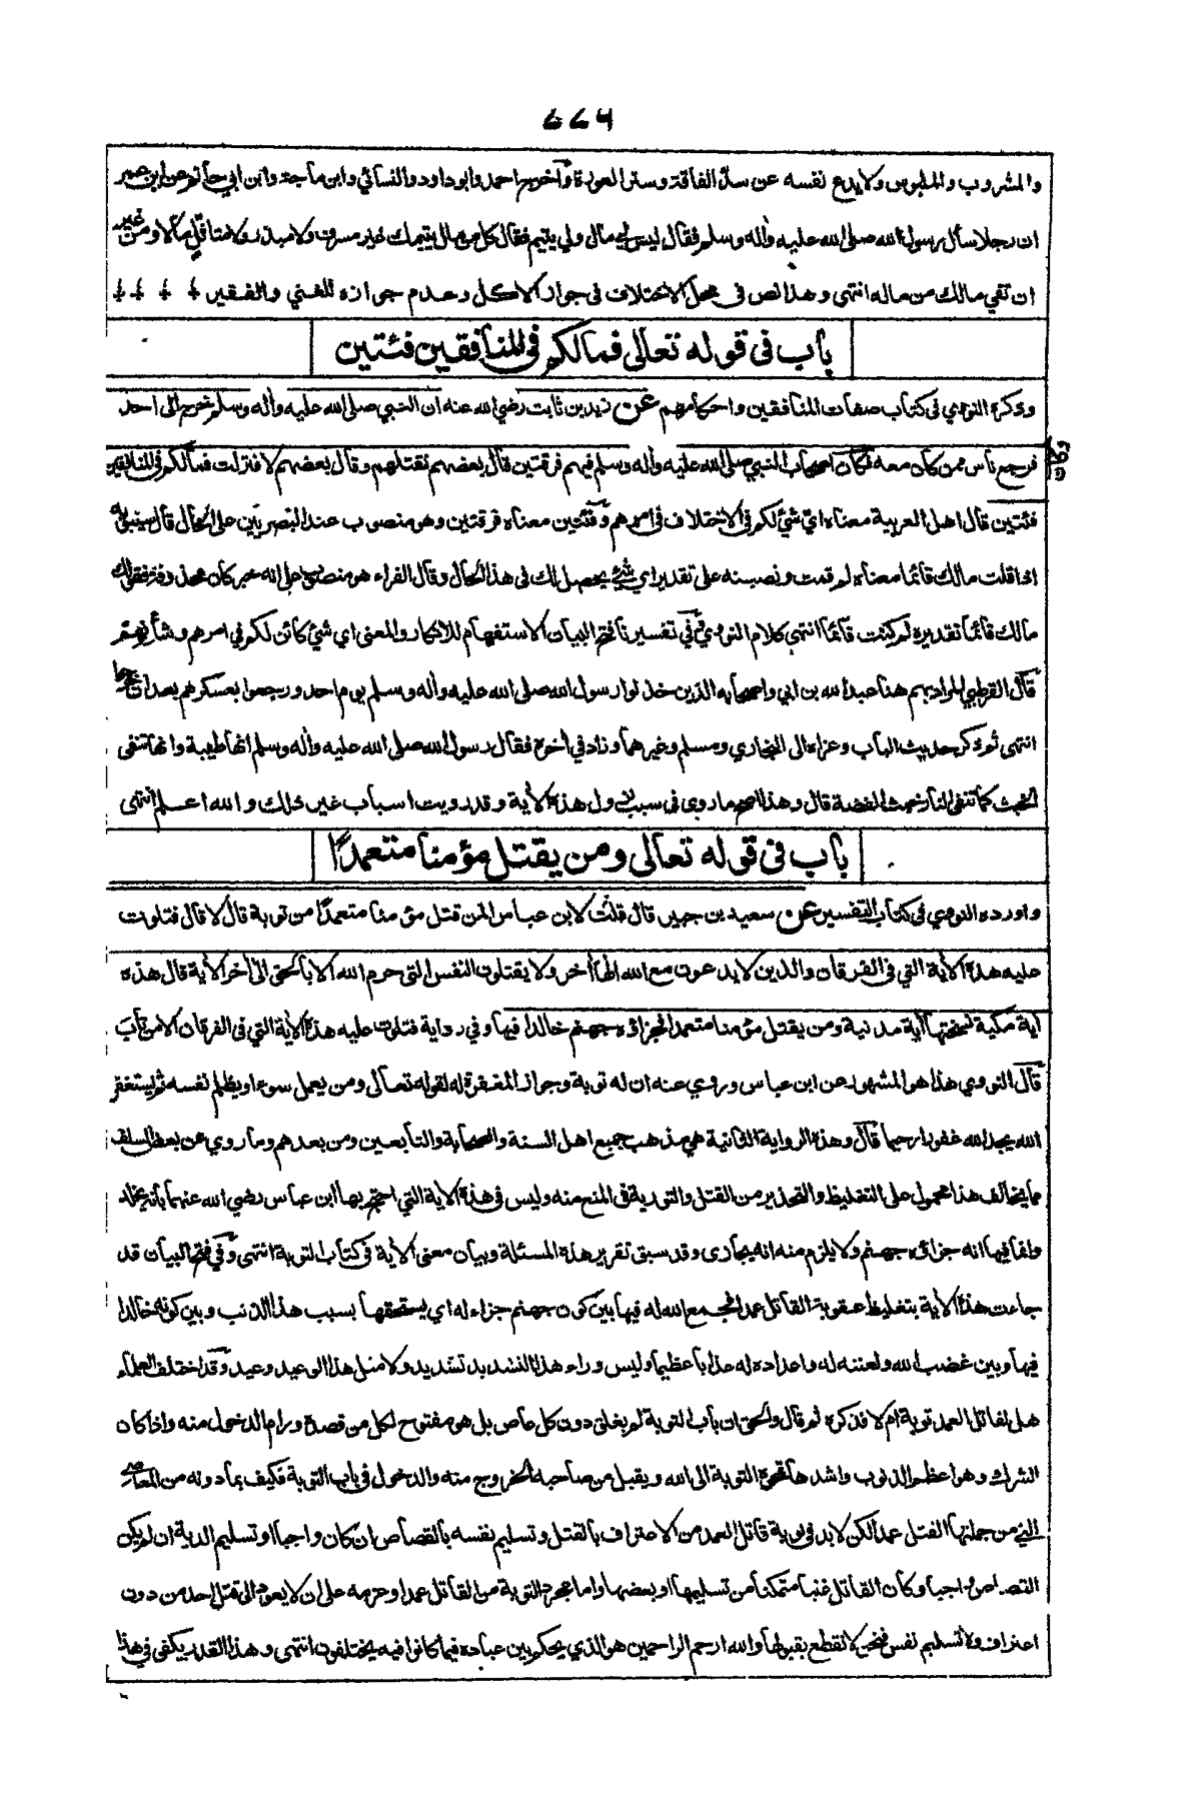 ٦٦٩
والمشروب والملبوس ولا يدع نفسه عن سد الفاقة وستر العورة وأخرج احمد وابو داود والنسائي وابن ماجة وابن ابي حاتم عن ابن عمر
ان رجلا سأل رسول الله صلى الله عليه واله وسلم فقال ليس لي مال ولي يتيم فقال كل من مال يتيمك غير مسرف ولا مبذر ولا متاثل مالا ومن غير
ان تقي مالك من ماله انتهى وهذا نص في محل الاختلاف في جواز الاكل وعدم جوازه للغني والفقير
باب في قوله تعالى فمالكم في المنافقين فئتين
وذكره النووي في كتاب صفات المنافقين واحكامهم عن زيد بن ثابت رضي الله عنه ان النبي صلى الله عليه واله وسلم خرج الى احد
فرجع ناس ممن كان معه فكان اصحاب النبي صلى الله عليه واله وسلم فيهم فرقتين قال بعضهم نقتلهم وقال بعضهم لا فنزلت فمالكم في المنافقين
فئتين قال اهل العربية معناه اي شئ لكم في الاختلاف في امرهم وفئتين معناه فرقتين وهو منصوب عند البصريين على الحال قال سيبويه
اذا قلت مالك قائما معناه لم قمت ونصبته على تقدير اي شئ يحصل لك في هذا الحال وقال الفراء هو منصوب على انه خبر كان محذوفة فقولك
مالك قائما تقديره لم كنت قائما انتهى كلام النووي وفي تفسيرنا فتح البيان الاستفهام للانكار والمعنى اي شئ كائن لكم في امرهم وشأنهم
قال القرطبي المراد بهم هنا عبد الله بن ابي واصحابه الذين خذلوا رسول الله صلى الله عليه واله وسلم يوم احد ورجعوا بعسكرهم بعد ان خرجوا
انتهى ثم ذكر حديث الباب وعزاه الى البخاري ومسلم وغيرهما وزاد في اخره فقال رسول الله صلى الله عليه واله وسلم انها طيبة وانها تنفى
الخبث كما تنفى النار خبث الفضة قال وهذا اصح ما روي في سبب نزول هذه الاية وقد رويت اسباب غير ذلك والله اعلم انتهى
باب في قوله تعالى ومن يقتل مؤمنا متعمدًا
واورده النووي في كتاب التفسير عن سعيد بن جبير قال قلت لابن عباس المن قتل مؤمنا متعمدًا من توبة قال لا قال فتلوت
عليه هذه الاية التي في الفرقان والذين لا يدعون مع الله الها أخر ولا يقتلون النفس التي حرم الله الا بالحق الى أخر الاية قال هذه
اية مكية نسختها اية مدنية ومن يقتل مؤمنا متعمدا فجزاؤه جهنم خالدا فيها وفي رواية فتلوت عليه هذه الاية التي في الفرقان الا من تاب
قال النووي هذا هو المشهور عن ابن عباس وروي عنه ان له توبة وجواز المغفرة له لقوله تعالى ومن يعمل سوءا او يظلم نفسه ثم يستغفر
الله يجد الله غفورا رحيما قال وهذه الرواية الثانية هي مذهب جميع اهل السنة والصحابة والتابعين ومن بعدهم وما روي عن بعض السلف
مما يخالف هذا محمول على التغليظ والتحذير من القتل والتورية في المنع منه وليس في هذه الاية التي احتج بها ابن عباس رضي الله عنهما بأنه يخلد
وانما فيها انه جزاؤه جهنم ولا يلزم منه انه يجازى وقد سبق تقرير هذه المسئلة وبيان معنى الاية في كتاب التوبة انتهى وفي فتح البيان قد
جاءت هذه الاية بتغليظ عقوبة القاتل عمدا فجمع الله له فيها بين كون جهنم جزاء له اي يستحقها بسبب هذا الذنب وبين كونه خالدا
فيها وبين غضب الله ولعنته له واعداده له عذابا عظيما وليس وراء هذا التشديد تشديد ولا مثل هذا الوعيد وعيد وقد اختلف العلماء
هل لقاتل العمد توبة ام لا فذكره ثم قال والحق ان باب التوبة لم يغلق دون كل عاص بل هو مفتوح لكل من قصده ورام الدخول منه واذا كان
الشرك وهو اعظم الذنوب واشدها تمحوه التوبة الى الله ويقبل من صاحبه الخروج منه والدخول في باب التوبة فكيف بما دونه من المعاصي
التي من جملتها القتل عمدا لكن لا بد في توبة قاتل العمد من الاعتراف بالقتل وتسليم نفسه بالقصاص ان كان واجبا او تسليم الدية ان لم يكن
القصاص واجبا وكان القاتل غنيا متمكنا من تسليمها او بعضها واما مجرد التوبة من القاتل عمدا وعزمه على ان لا يعود الى قتل احد من دون
اعتراف ولا تسليم نفس فنحن لا نقطع بقبولها والله ارحم الراحمين هو الذي يحكم بين عباده فيما كانوا فيه يختلفون انتهى وهذا القدر يكفى في هذا